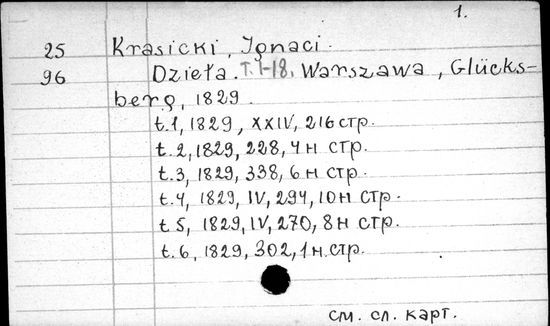 1.
25 Krasicki, Ignaci.
96 Dzieła. T. 1-18. Warszawa, Glücks-
berg, 1829.
t.1, 1829, XXIV, 216 стр.
t.2, 1829, 228, 4 н стр.
t.3, 1829, 338, 6 н стр.
t.4, 1829, IV, 294, 10 н стр.
t 5, 1829, IV, 270, 8 н стр.
t.6, 1829, 302, 1 н. стр.
см. сл. карт.